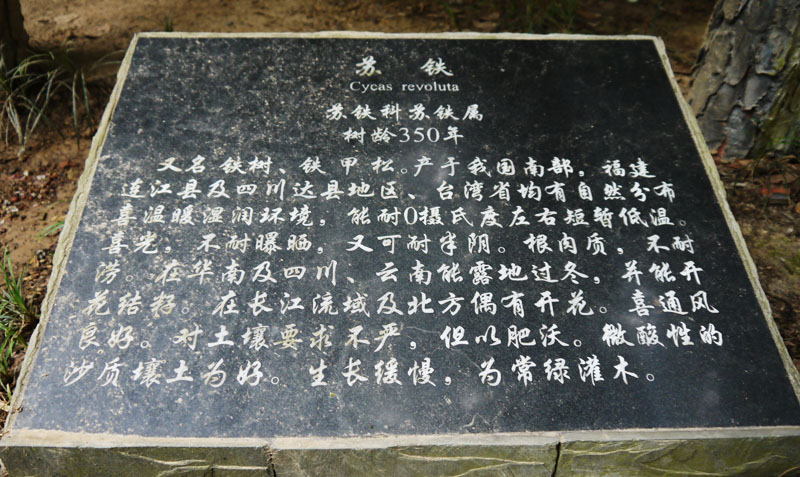 苏铁
Cycas revoluta
苏铁科苏铁属
树龄350年
又名铁树、铁甲松。产于我国南部，福建
连江县及四川达县地区、台湾省均有自然分布
喜温暖湿润环境，能耐0摄氏度左右短暂低温。
喜光，不耐曝晒，又可耐半阴。根肉质，不耐
涝。在华南及四川、云南能露地过冬，并能开
花结籽。在长江流域及北方偶有开花。喜通风
良好。对土壤要求不严，但以肥沃。微酸性的
沙质壤土为好。生长缓慢，为常绿灌木。